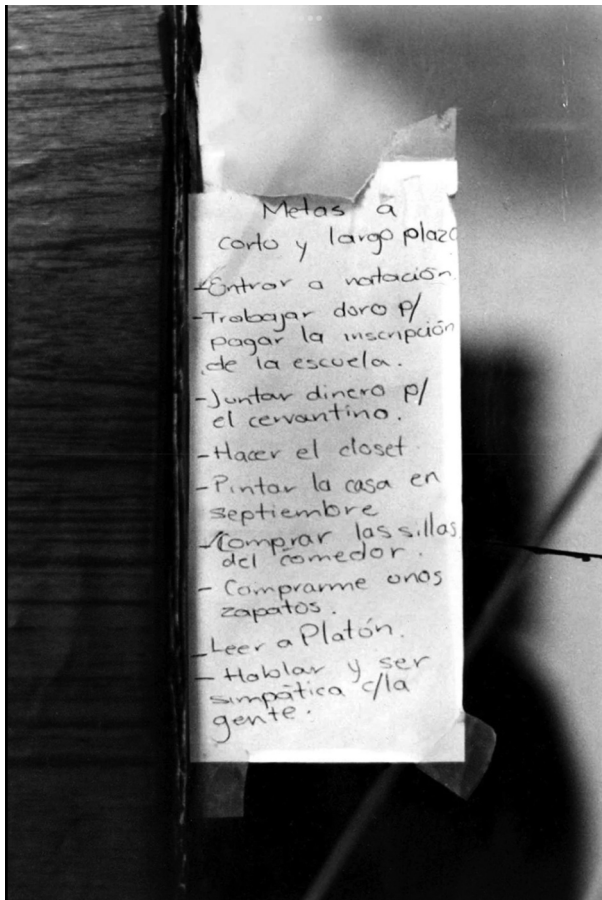 Metas a
corto y largo plazo
-Entrar a natación.
-Trabajar duro p/
pagar la inscripción
de la escuela.
-Juntar dinero p/
el cervantino.
-Hacer el closet
-Pintar la casa en
septiembre
-Comprar las sillas
del comedor.
- Comprarme unos
zapatos.
-Leer a Platón.
- Hablar y ser
simpática c/la
gente.